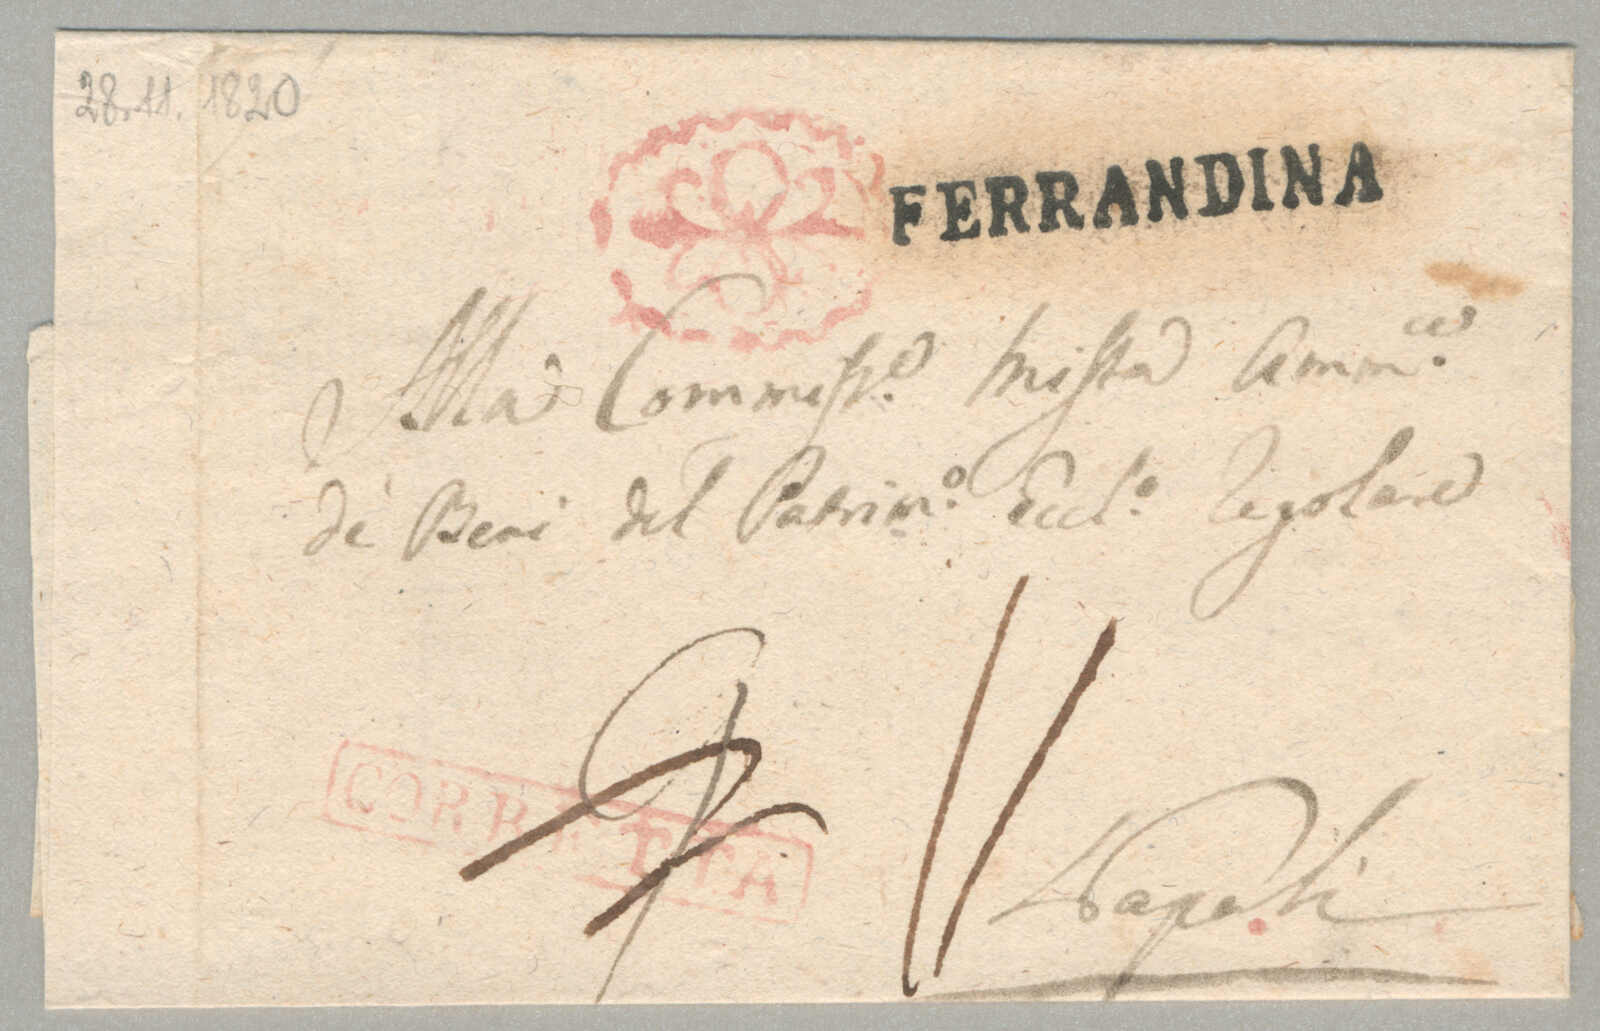 28.11.1820
FERRANDINA
Alla Commiss.e Mista Amm.ce
de' Beni del Patrim.o Eccl.o Regolare
9
11
CORRETTA
Napoli